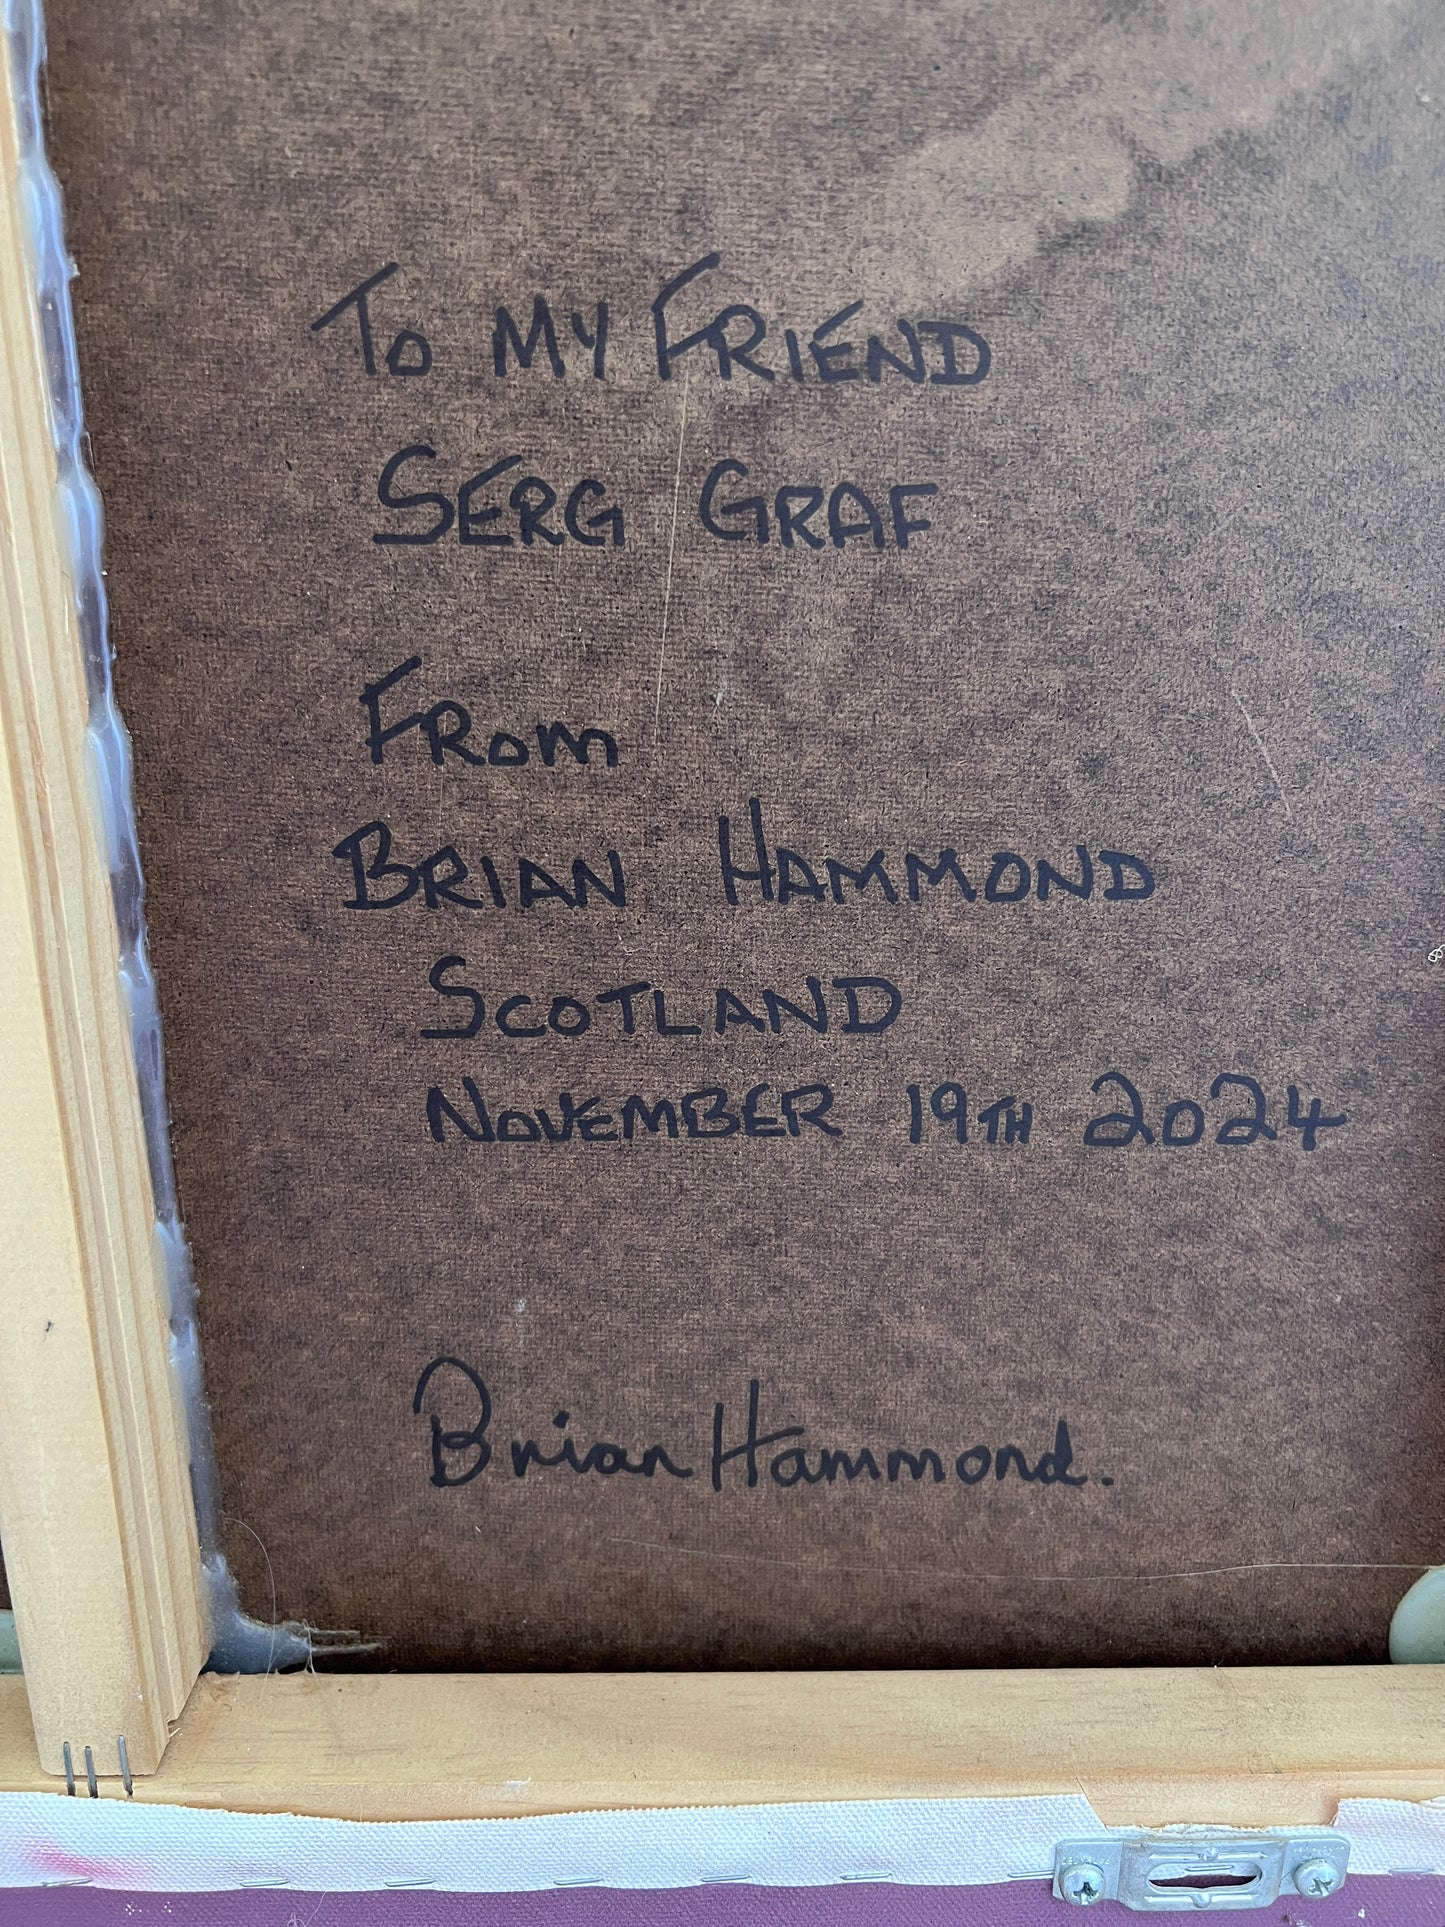 To MY FRIEND
SERG GRAF
FRom
BRIAN HAMMOND
SCOTLAND
NOVEMBER 19TH 2024
Brian Hammond.